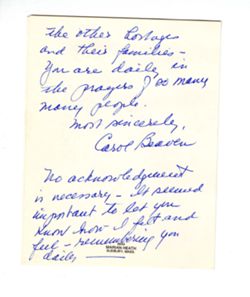 the other hostages
and their families -
You are daily in
the prayers of so many
many people.
Most sincerely,
Carol Beaven
No acknowledgement
is necessary - It seemed
important to let you
know how I felt and
feel - remembering you
daily
MARIAN HEATH